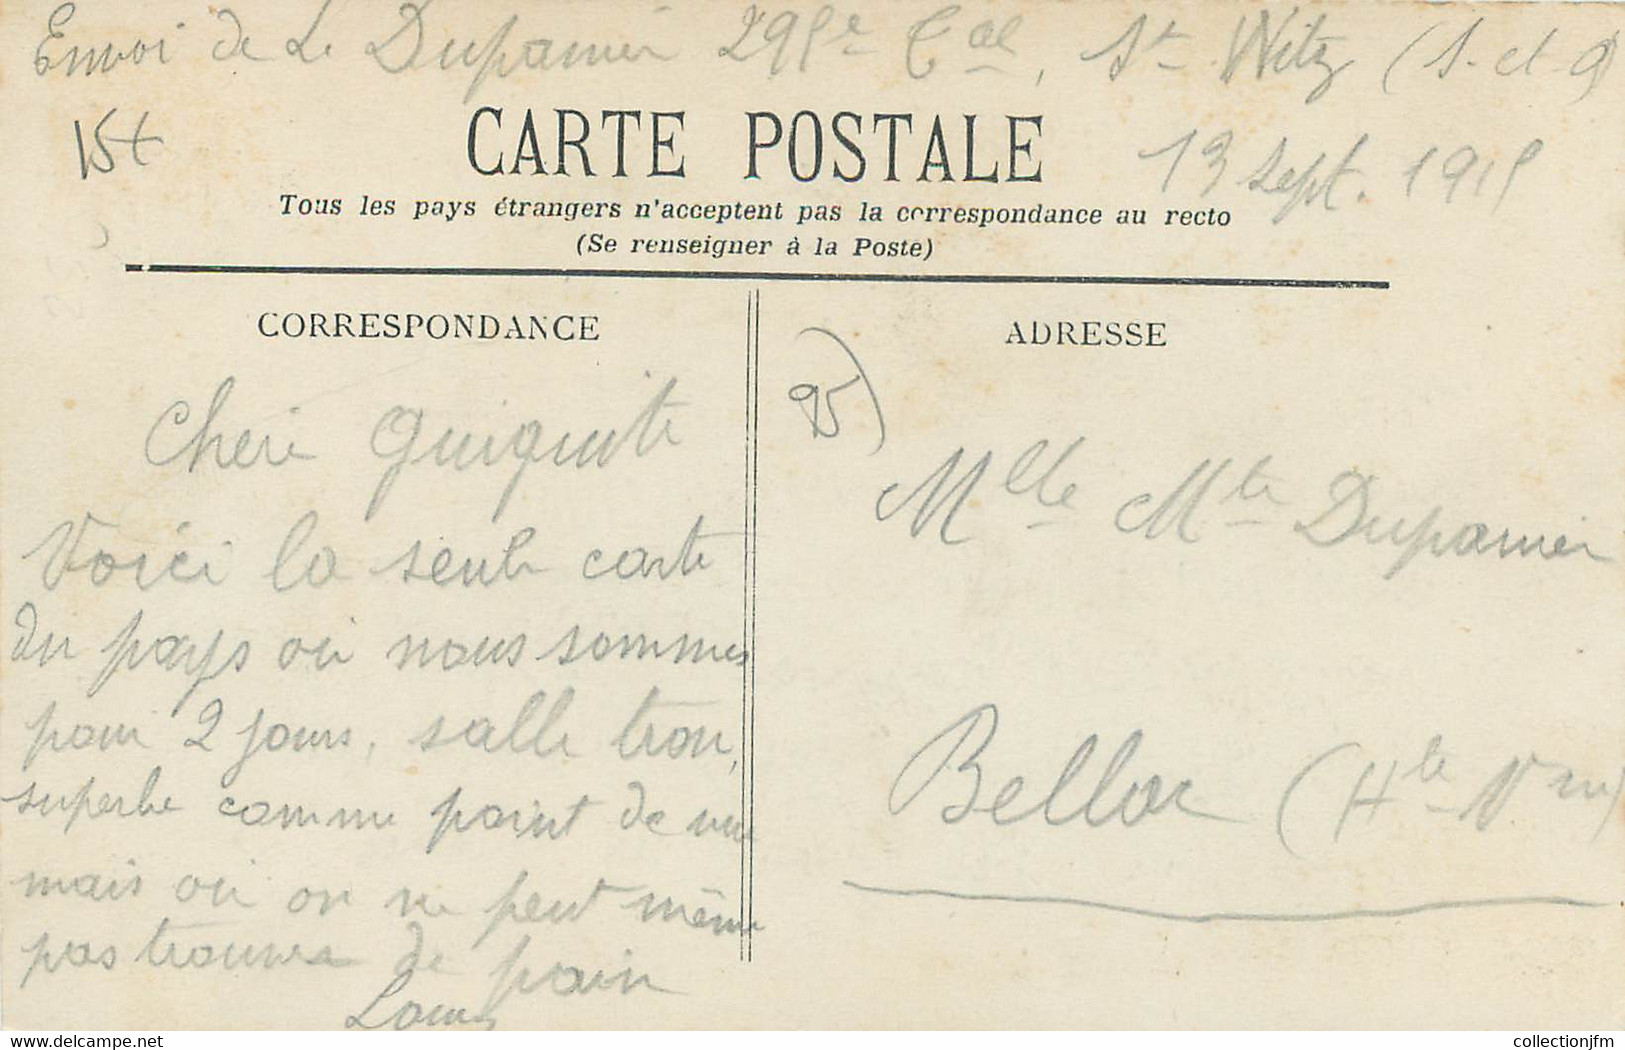 Envoi de L. Dupanier 295e Cal, St Witz (S-et-O)
15€
CARTE POSTALE
13 Sept. 1915
Tous les pays étrangers n'acceptent pas la correspondance au recto
(Se renseigner à la Poste)
CORRESPONDANCE
Cheri Guiguite
Voici la seule carte
du pays où nous sommes
pour 2 jours, salle trou,
superbe comme point de vue
mais où on ne peut même
pas trouver de pain
Louis
ADRESSE
95
Mlle Mte Dupanier
Bellac (Hte Vne)
collectionjfm